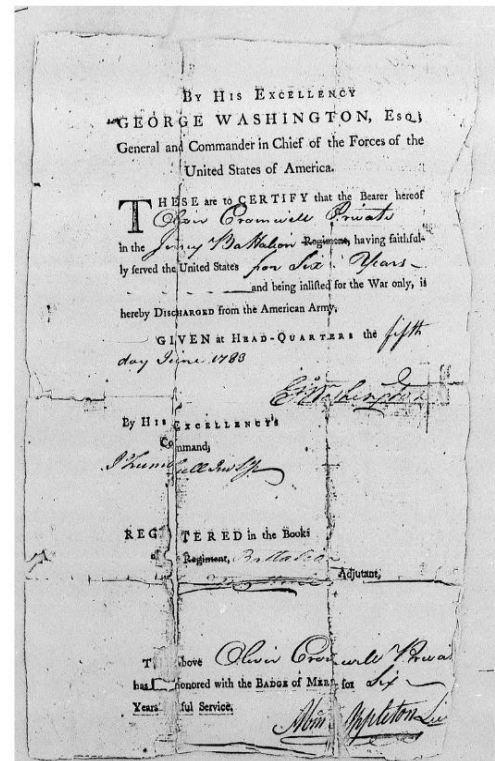 BY HIS EXCELLENCY
GEORGE WASHINGTON, ESQ;
General and Commander in Chief of the Forces of the
United States of America.
THESE are to CERTIFY that the Bearer hereof
Oliver Cromwell Private
in the Jersey Battalion Regiment, having faithful-
ly served the United States for Six Years
and being inlisted for the War only, is
hereby DISCHARGED from the American Army.
GIVEN at HEAD-QUARTERS the fifth
day June 1783
GWashington
By HIS EXCELLENCY'S
Command,
REG TERED in the Books
of Regiment, Battalion
Adjutant,
T bove Oliver Cromwell Privat
has honored with the BADGE of MERIT for Six
Years ful Service.
Appleton